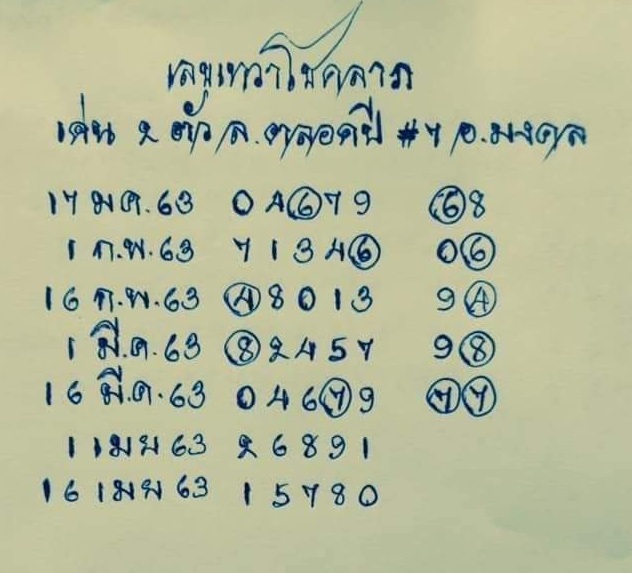 เลขเทวาโชคลาภ
เด่น 2 ตัว ล.ตลอดปี #7 อ.มงคล
17 มค.63 04679 68
1 ก.พ.63 71346 06
16 ก.พ.63 48013 94
1 มี.ค.63 82457 98
16 มี.ค.63 04679 77
1 เมย 63 26891
16 เมย 63 15780